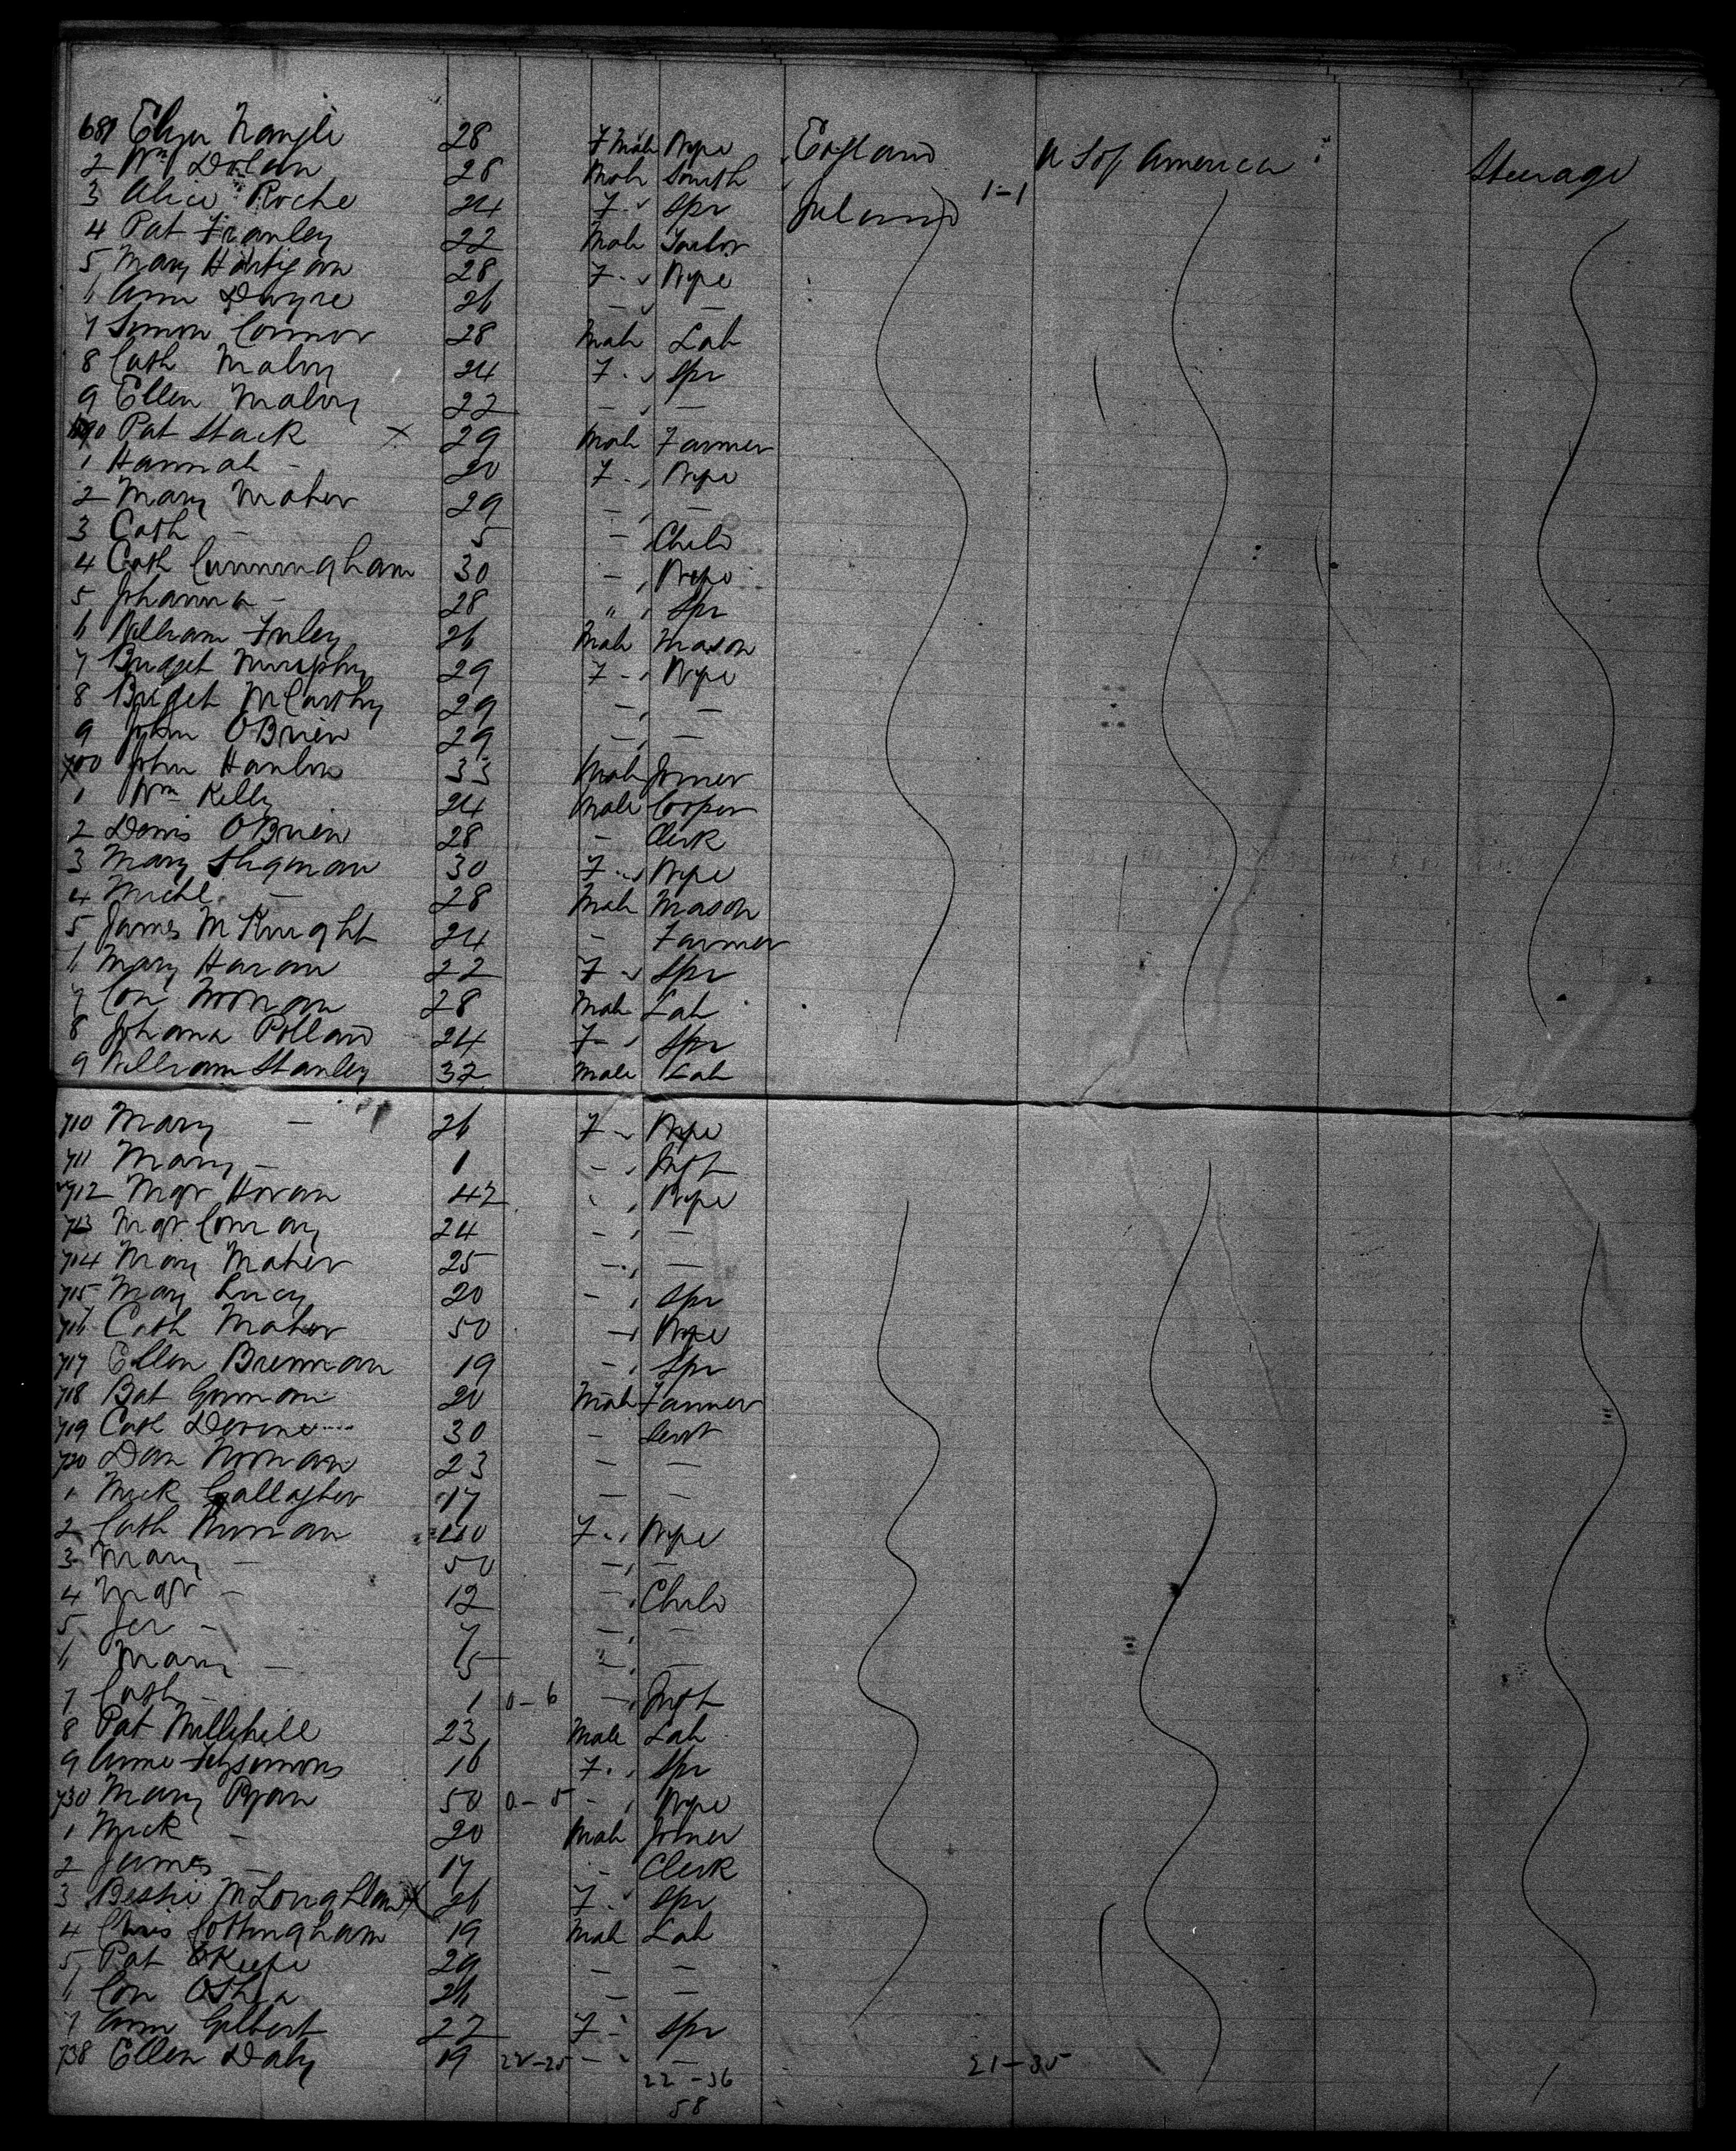 681 Eliza Nangle 28 Female Wife England U S of America Steerage
2 Wm Dolan 28 Male Smith
3 Alice Roche 24 F " Spr Ireland 1-1
4 Pat Franley 22 Male Tailor
5 Mary Hartigan 28 F " Wife
6 Ann Dwyre 26 - " -
7 Simon Connor 28 Male Lab
8 Cath Malony 24 F " Spr
9 Ellen Malony 22 - " -
690 Pat Stack X 29 Male Farmer
1 Hannah - 20 F " Wife
2 Mary Maher 29 - " -
3 Cath - 5 - Child
4 Cath Cunningham 30 - " Wife
5 Johanna - 28 " " Spr
6 William Finley 26 Male Mason
7 Bridget Murphy 29 F " Wife
8 Bridget McCarthy 29 - " -
9 John OBrien 29 - " -
700 John Hanlon 33 Male Joiner
1 Wm Kelly 24 Male Cooper
2 Denis OBrien 28 - Clerk
3 Mary 30 F " Wife
4 Michl - 28 Male Mason
5 James McKnight 24 - Farmer
6 Mary Haran 22 F " Spr
7 Con Noonan 28 Male Lab
8 Johana Pollard 24 F " Spr
9 William Stanley 32 Male Lab
710 Mary - 26 F " Wife
711 Mary - 1 - " Inft
712 Mgr Horan 42 " " Wife
713 Mgr Conway 24 - " -
714 Mary Maher 25 - " -
715 Mary Lucy 20 - " Spr
716 Cath Maher 50 - " Wife
717 Ellen Brennan 19 - " Spr
718 Bat Gorman 20 Male Farmer
719 Cath Devine 30 - Servt
720 Dan Noonan 23 - -
1 Mick Gallagher 17 - -
2 Cath Noonan 40 F " Wife
3 Mary - 50 - " -
4 Mgr - 12 - " Child
5 Jer - 7 - " -
6 Mary - 5 - " -
7 Cath - 1 0-6 - " Inft
8 Pat Mullihill 23 Male Lab
9 Anne Fitzsimons 16 F " Spr
730 Mary Ryan 50 0-5 - " Wife
1 Mick - 20 Male Joiner
2 James - 17 - Clerk
3 Bessie McLoughlan X 26 F " Spr
4 Chris Cottingham 19 Male Lab
5 Pat OKeefe 29 - -
6 Con OShea 26 - -
7 Ann Gilbert 22 F " Spr
738 Ellen Daly 19 22-25 - " - 21-35
22-36
58